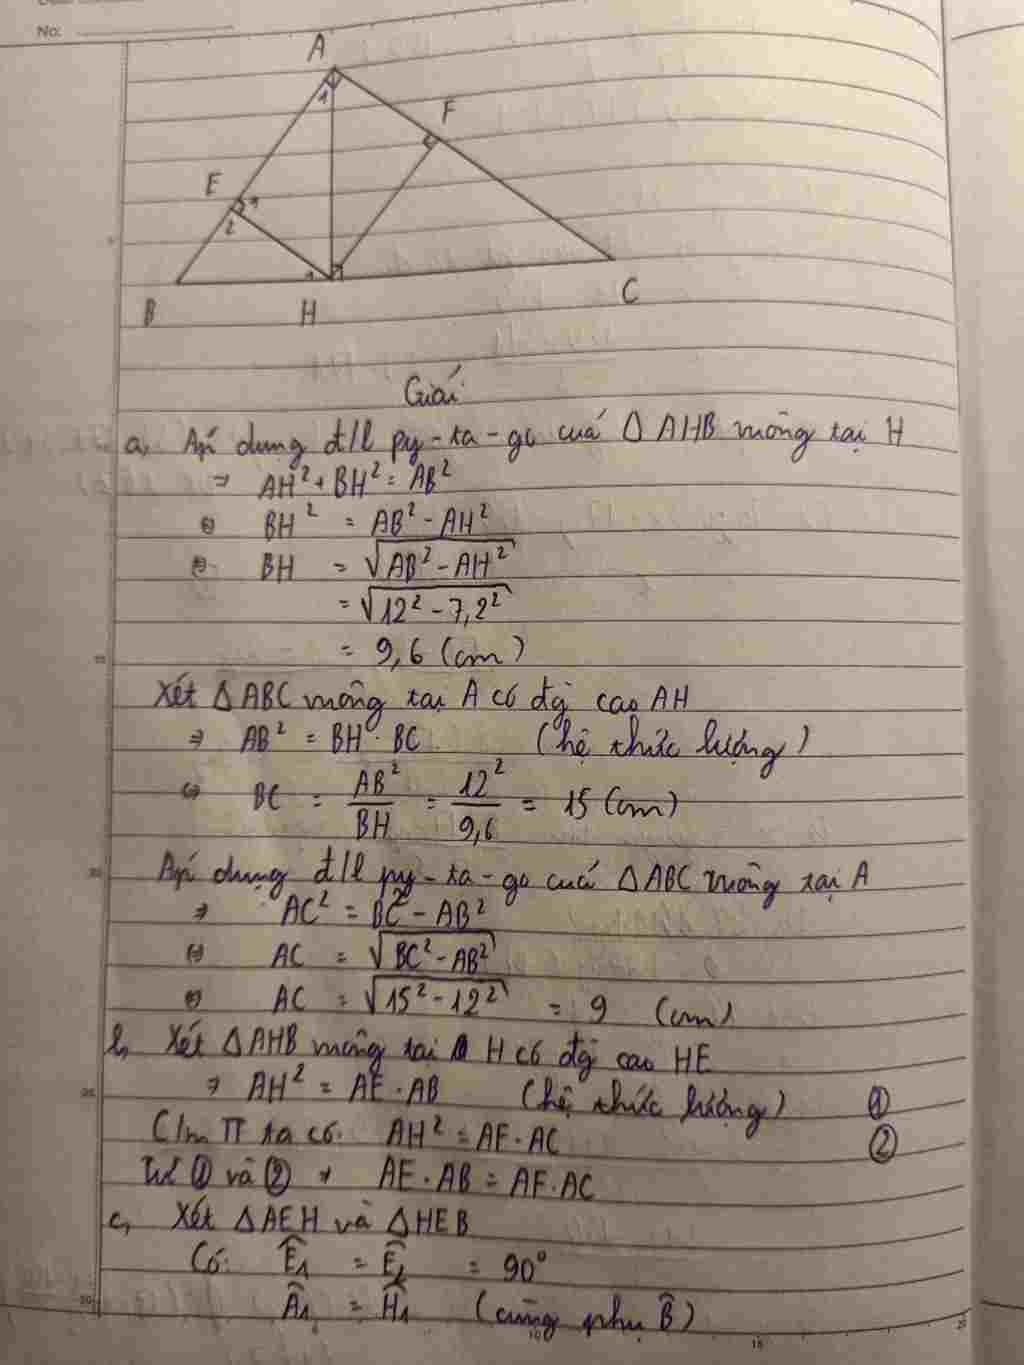 No:
A
1
F
E
1
2
1
B
H
C
Giải
a, Áp dụng đ/l py-ta-go của Δ AHB vuông tại H
⇒ AH² + BH² = AB²
⇔ BH² = AB² - AH²
⇔ BH = √AB² - AH²
= √12² - 7,2²
= 9,6 (cm)
Xét Δ ABC vuông tại A có đg cao AH
⇒ AB² = BH . BC (hệ thức lượng)
⇔ BC = AB²/BH = 12²/9,6 = 15 (cm)
Áp dụng đ/l py-ta-go của Δ ABC vuông tại A
⇒ AC² = BC² - AB²
⇔ AC = √BC² - AB²
⇔ AC = √15² - 12² = 9 (cm)
b, Xét Δ AHB vuông tại H có đg cao HE
⇒ AH² = AE . AB (hệ thức lượng) ①
C/m TT ta có: AH² = AF . AC ②
Từ ① và ② ⇒ AE . AB = AF . AC
c, Xét Δ AEH và Δ HEB
Có: Ê₁ = Ê₂ = 90°
Â₁ = Ĥ₁ (cùng phụ B̂)
10 15